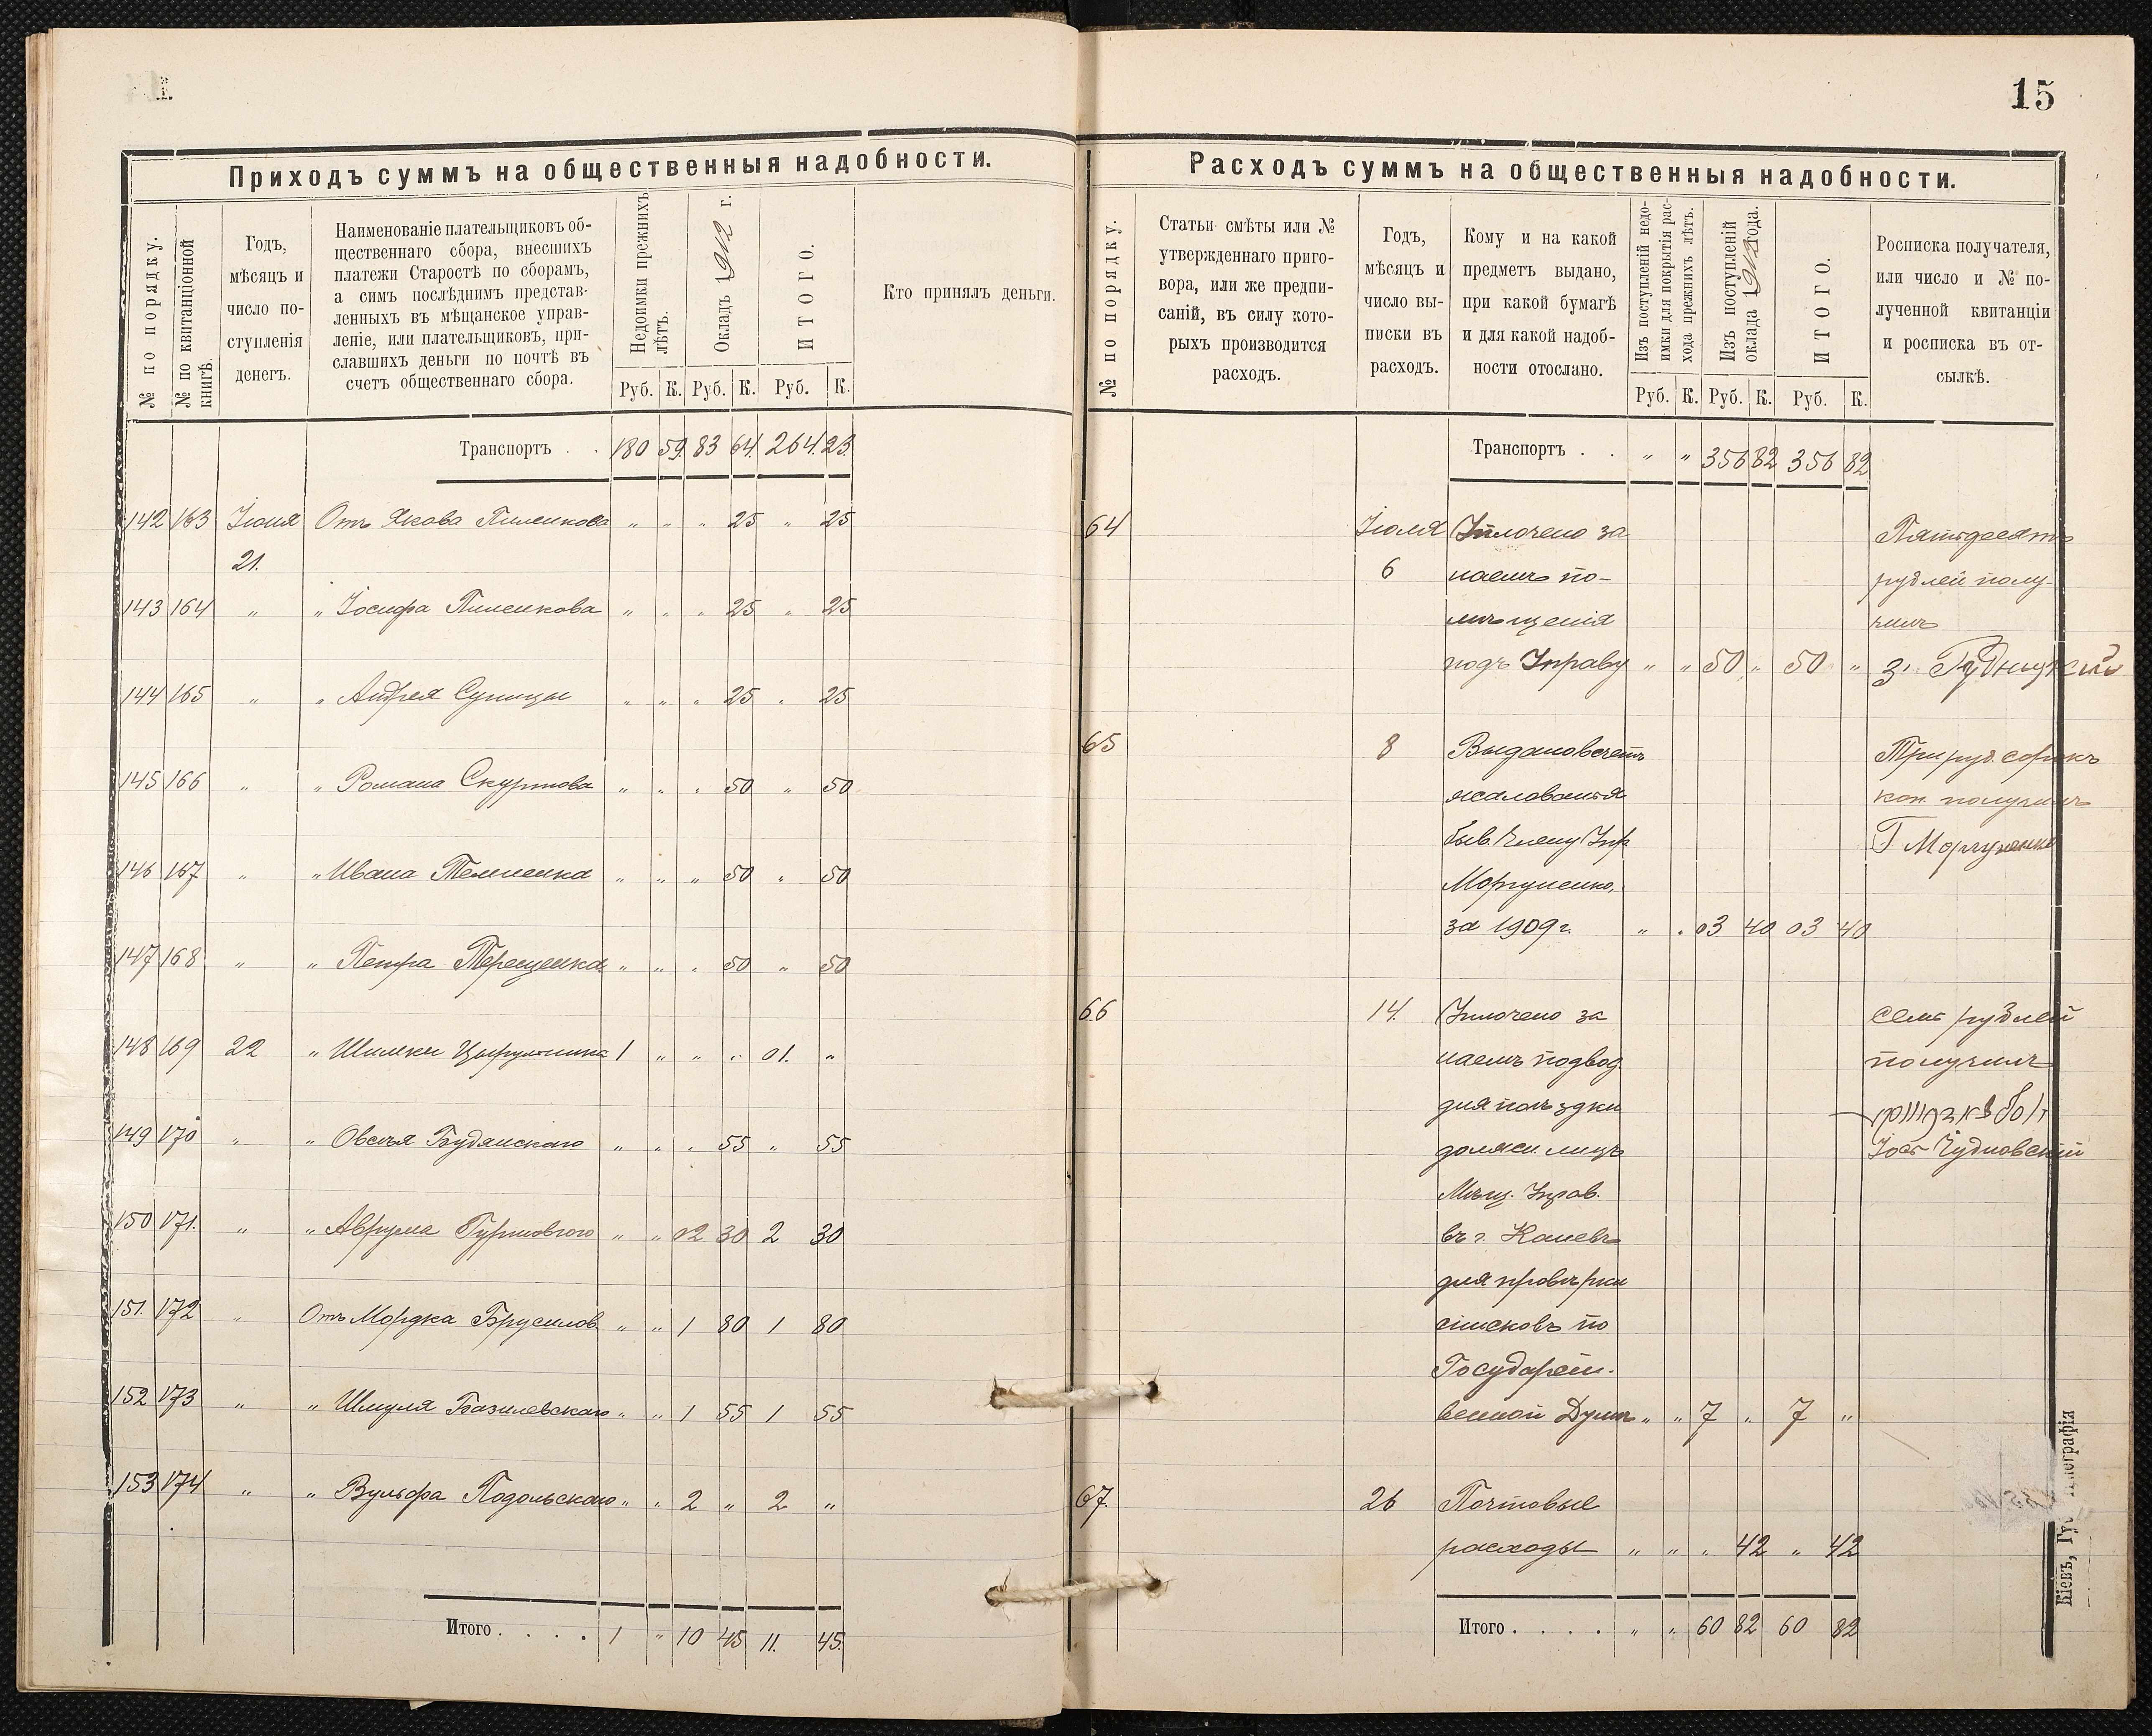 15
Приходъ суммъ на общественныя надобности.
№ по порядку.
№ по квитанціонной
книгѣ.
Годъ,
мѣсяцъ и
число по-
ступленія
денегъ.
Наименованіе плательщиковъ об-
щественнаго сбора, внесшихъ
платежи Старостѣ по сборамъ,
а симъ послѣднимъ представ-
ленныхъ въ мѣщанское управ-
леніе, или плательщиковъ, при-
славшихъ деньги по почтѣ въ
счетъ общественнаго сбора.
Недоимки прежнихъ
лѣтъ.
Окладъ 1912 г.
ИТОГО.
Кто принялъ деньги.
Руб. К. Руб. К. Руб. К.
Транспортъ . . 180 59. 83 64. 264. 23.
142 163 Іюня Отъ Якова Пиленкова „ „ „ 25 „ 25
21.
143 164 „ „ Іосифа Пиленкова „ „ „ 25 „ 25
144 165 „ „ Андрея Супицы „ „ „ 25 „ 25
145 166 „ „ Романа Скуртова „ „ „ 50 „ 50
146 167 „ „ Ивана Темненка „ „ „ 50 „ 50
147 168 „ „ Петра Терещенка „ „ „ 50 „ 50
148 169 22 „ Шимки 1 „ „ „ 01. „
149 170 „ „ Овсея Будянскаго „ „ „ 55 „ 55
150 171. „ „ Аврума „ „ 02 30 2 30
151. 172 „ Отъ Мордка Брусилов „ „ 1 80 1 80
152 173 „ „ Шмуля Базилевскаго „ „ 1 55 1 55
153 174 „ „ Вульфа Подольскаго „ „ 2 „ 2 „
Итого . . . . 1 „ 10 45 11. 45.
Расходъ суммъ на общественныя надобности.
№ по порядку.
Статьи смѣты или №
утвержденнаго приго-
вора, или же предпи-
саній, въ силу кото-
рыхъ производится
расходъ.
Годъ,
мѣсяцъ и
число вы-
писки въ
расходъ.
Кому и на какой
предметъ выдано,
при какой бумагѣ
и для какой надоб-
ности отослано.
Изъ поступленій недо-
имки для покрытія рас-
хода прежнихъ лѣтъ.
Изъ поступленій
оклада 1912 года.
ИТОГО.
Росписка получателя,
или число и № по-
лученной квитанціи
и росписка въ от-
сылкѣ.
Руб. К. Руб. К. Руб. К.
Транспортъ . . „ „ 356 82 356 82
64 Іюля Уплочено за Пятьдесятъ
6 наемъ по- рублей полу-
мѣщенія чилъ
подъ Управу „ „ 50 „ 50 „
65 8 Выдано въ счетъ Три руб. сорокъ
жалованія коп. получилъ
быв. Члену Упр Г Моргуненко
Моргуненко,
за 1909 г. „ „ 03 40 03 40
66 14. Уплочено за семь рублей
наемъ подвод. получилъ
для поѣздки
должн. лицъ Іос Чудновскій
Мѣщ. Управ.
въ г. Каневъ
для провѣрки
списковъ по
Государст.
венной Думѣ „ „ 7 „ 7 „
67. 26 Почтовые
расходы „ „ „ 42 „ 42
Итого . . . . „ „ 60 82 60 82